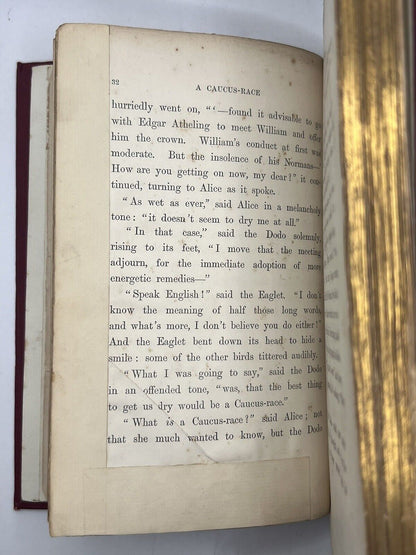 32
A CAUCUS-RACE
hurriedly went on, "'—found it advisable to go
with Edgar Atheling to meet William and offer
him the crown. William's conduct at first was
moderate. But the insolence of his Normans—'
How are you getting on now, my dear?" it con-
tinued, turning to Alice as it spoke.
"As wet as ever," said Alice in a melancholy
tone: "it doesn't seem to dry me at all."
"In that case," said the Dodo solemnly,
rising to its feet, "I move that the meeting
adjourn, for the immediate adoption of more
energetic remedies—"
"Speak English!" said the Eaglet. "I don't
know the meaning of half those long words,
and what's more, I don't believe you do either!"
And the Eaglet bent down its head to hide a
smile: some of the other birds tittered audibly.
"What I was going to say," said the Dodo
in an offended tone, "was, that the best thing
to get us dry would be a Caucus-race."
"What is a Caucus-race?" said Alice; not
that she much wanted to know, but the Dodo